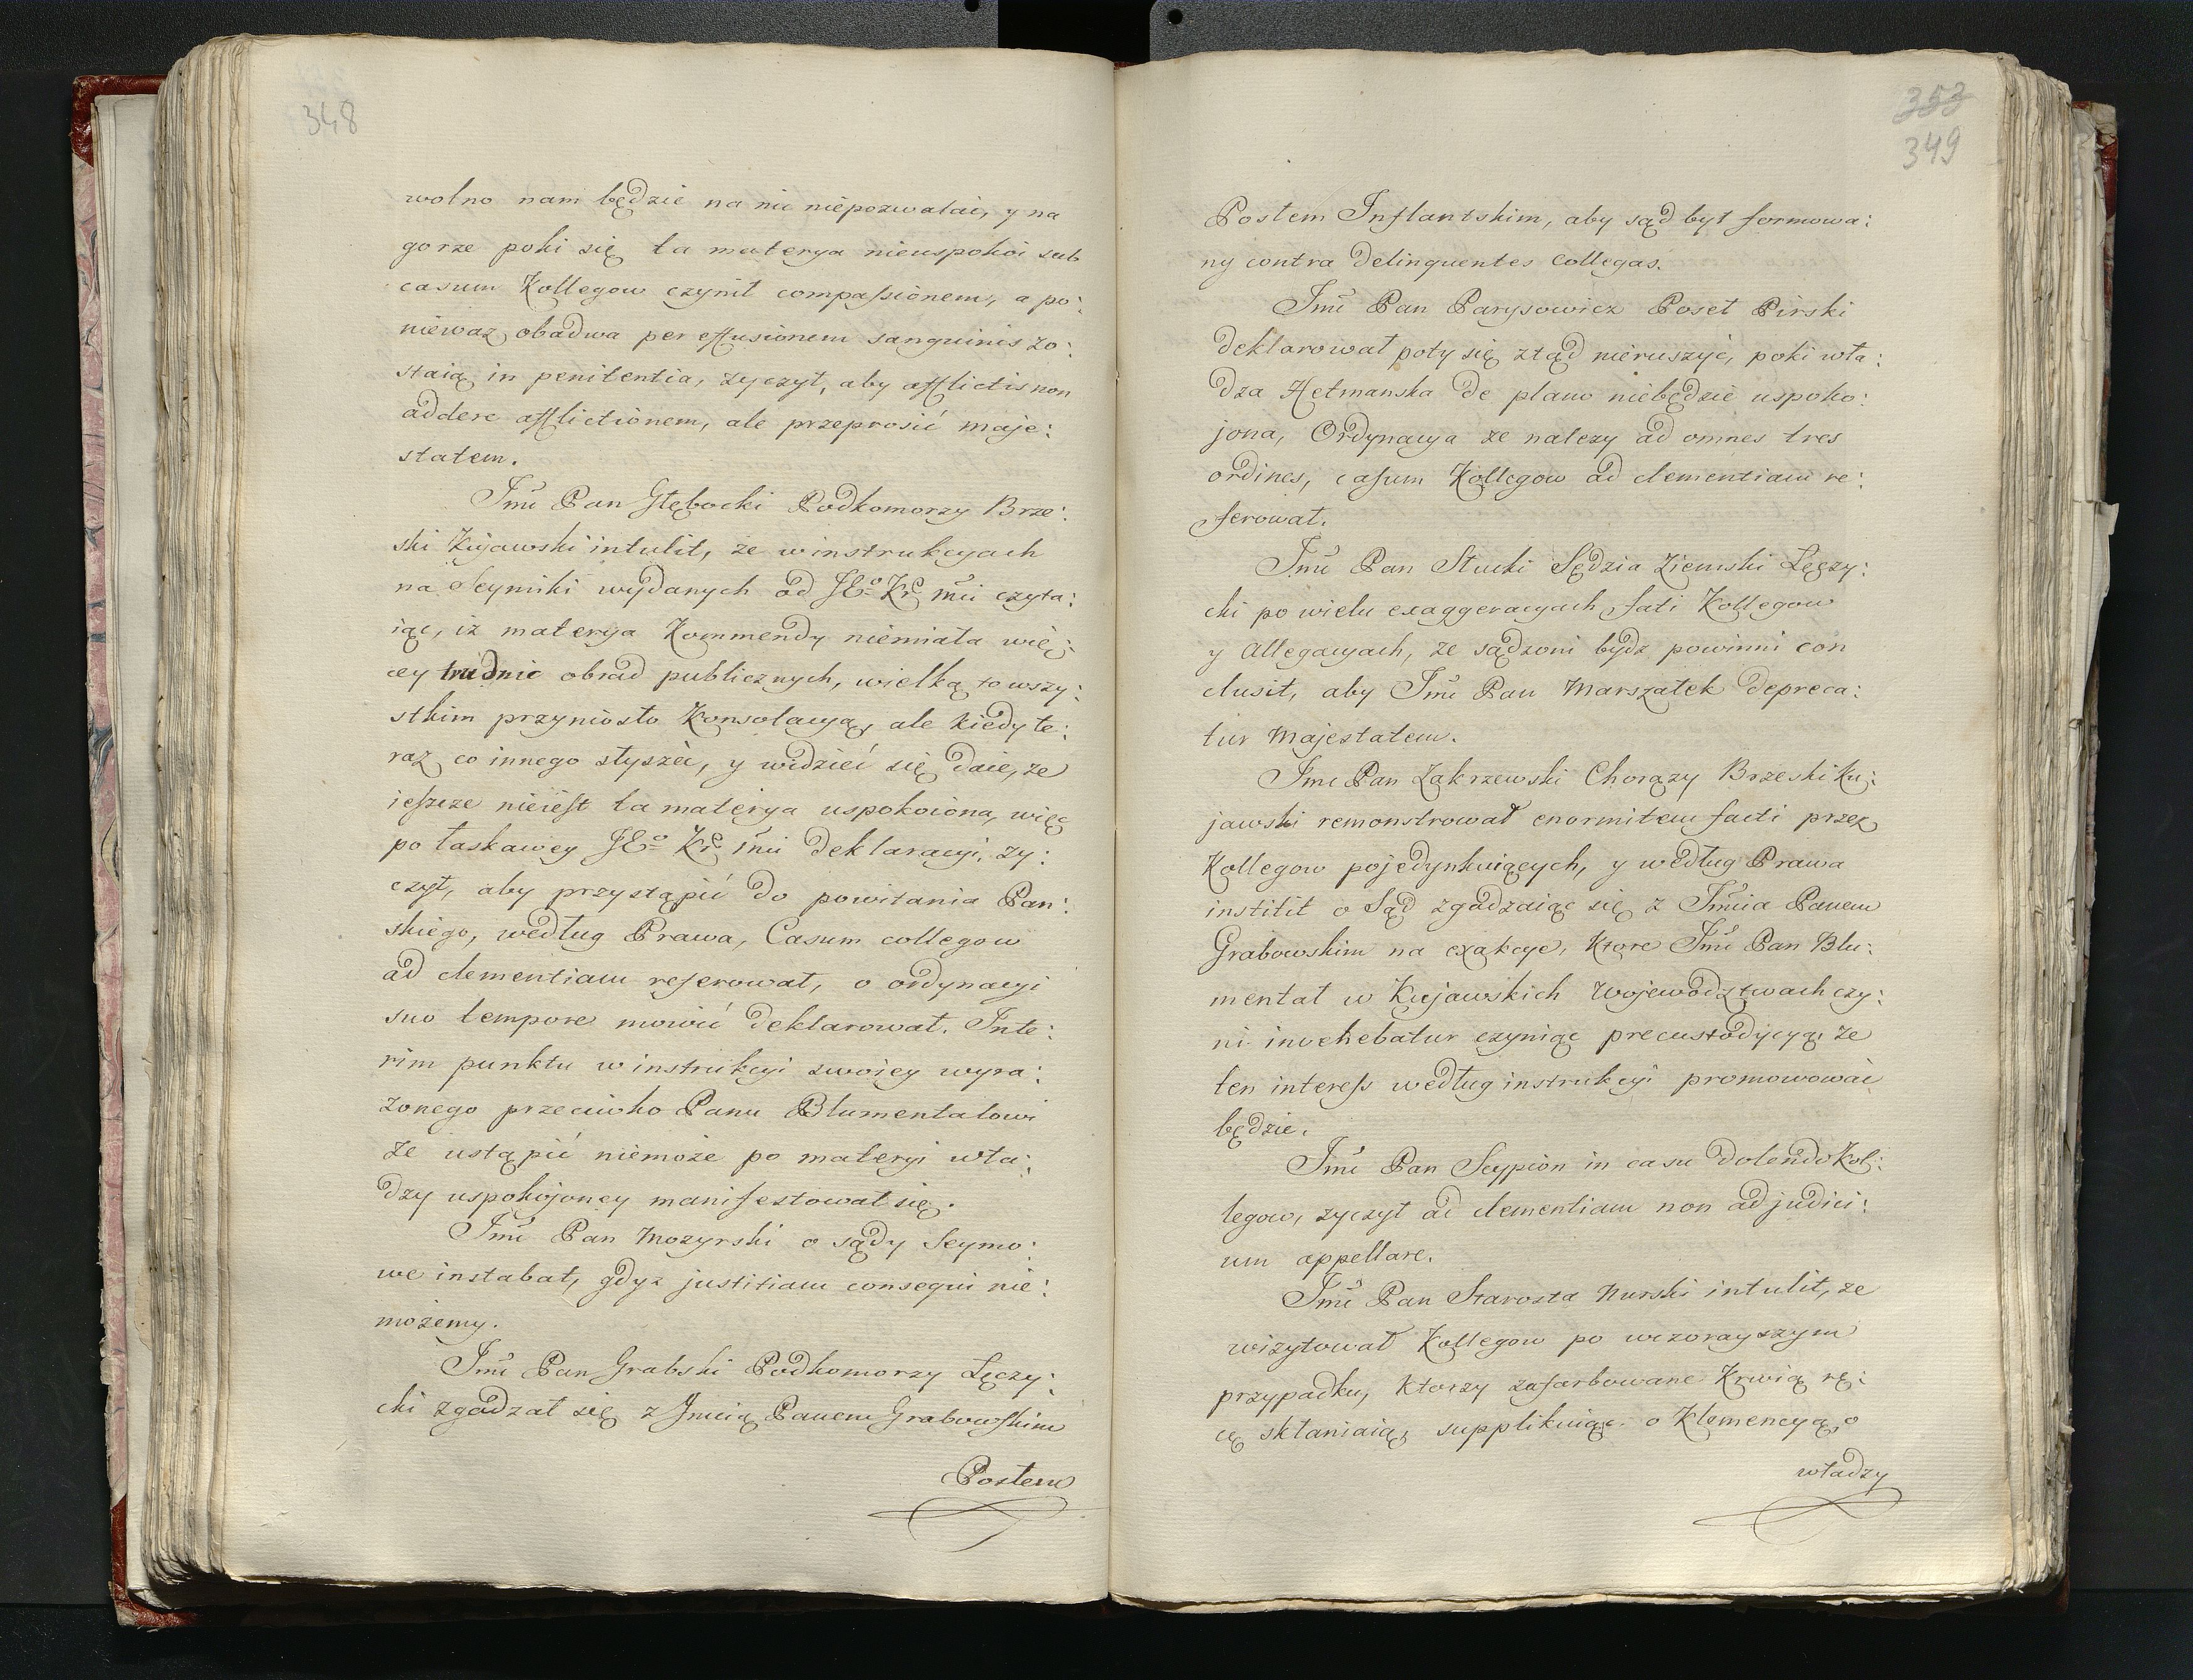 348
wolno nam będzie na nic niepozwalać, y na
gorze poki się ta materya nieuspokoi sub
casum Kollegow czynił compassionem, a po:
niewaz obadwa per effusionem sanguinis zo:
staią in penitentia, zyczył, aby afflictis non
addere afflictionem, ale przeprosić maje:
statem.
Jmć Pan Głębocki Podkomorzy Brze:
ski Kujawski intulit, ze w instrukcyach
na Seymiki wydanych od JEo Kr mći czyta:
iąc, iz materya Kommendy niemiała wię:
cey trudnić obrad publicznych, wielką to wszy:
stkim przyniosło Konsolacyą, ale kiedy te:
raz co innego słyszeć, y widzieć się daie, ze
ieszcze nieiest ta materya uspokoiona, więc
po łaskawey JEo Kr mći deklaracyi, zy:
czył, aby przystąpić do powitania Pan:
skiego, według Prawa, Casum collegow
ad clementiam referował, o ordynacyi
suo tempore mowić deklarował. Inte:
rim punktu w instrukcyi swoiey wyra:
zonego przeciwko Panu Blumentalowi
ze ustąpić niemoże po materyi wła:
dzy uspokojoney manifestował się.
Jmć Pan Mozyrski o sądy Seymo:
we instabat, gdyz justitiam consequi nie:
możemy.
Jmć Pan Grabski Podkomorzy Łęczy:
cki zgadzał się z Jmcią Panem Grabowskim
Posłem
353
349
Posłem Inflantskim, aby sąd był formowa:
ny contra delinquentes collegas.
Jmć Pan Parysowicz Poseł Pirski
deklarował poty się ztąd nieruszyć, poki wła:
dza Hetmanska de plano niebędzie uspoko:
jona, Ordynacya ze nalezy ad omnes tres
ordines, casum Kollegow ad clementiam re:
ferował.
Jmć Pan Stucki Sędzia Ziemski Łęczy:
cki po wielu exaggeracyach fati Kollegow
y allegacyach, ze sądzoni bydz powinni con
clusit, aby Jmć Pan Marszałek depreca:
tur Majestatem.
Jmć Pan Zakrzewski Chorązy Brzeski Ku:
jawski remonstrował enormitem facti przez
Kollegow pojedynkuiących, y według Prawa
institit o Sąd zgadzaiąc się z Jmcia Panem
Grabowskim na exakcye, ktore Jmć Pan Blu:
mentat w Kujawskich Wojewodztwach czy:
ni invehebatur czyniąc precustodycyą, ze
ten interess według instrukcyi promowować
będzie.
Jmć Pan Scypion in casu dolendo Kol:
legow, zyczył ad clementiam non ad judici:
um appellare.
Jmć Pan Starosta Nurski intulit, ze
wizytował Kollegow po wczorayszym
przypadku, ktorzy zafarbowane Krwią rę:
cę skłaniaią, supplikuiąc o Klemencyą, o
władzy